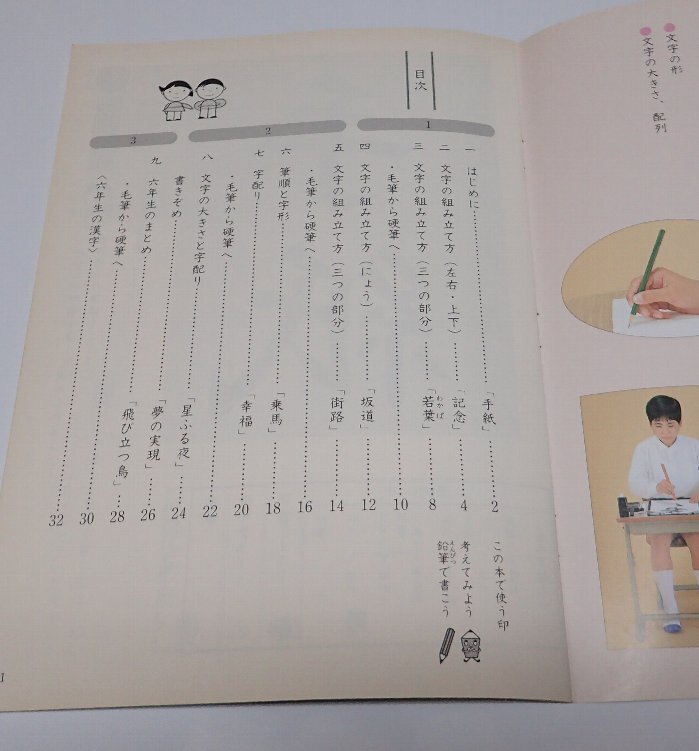 文字の形
文字の大きさ、配列
目次
1
一 はじめに……「手紙」……2
二 文字の組み立て方(左右・上下)……「記念」……4
三 文字の組み立て方(三つの部分)……「若葉」……8
わかば
・毛筆から硬筆へ……10
四 文字の組み立て方(にょう)……「坂道」……12
五 文字の組み立て方(三つの部分)……「街路」……14
2
・毛筆から硬筆へ……16
六 筆順と字形……「乗馬」……18
七 字配り……「幸福」……20
・毛筆から硬筆へ……22
八 文字の大きさと字配り……「星ふる夜」……24
3
書きぞめ……「夢の実現」……26
九 六年生のまとめ……「飛び立つ鳥」……28
・毛筆から硬筆へ……30
〈六年生の漢字〉……32
この本で使う印
考えてみよう
鉛筆で書こう
えんぴつ
1